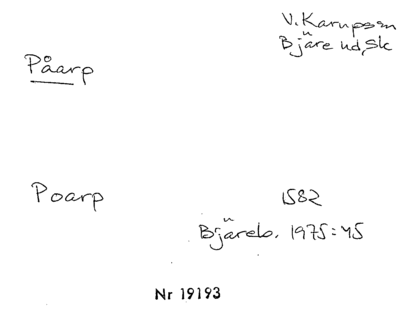 V. Karupssn
Bjäre hd, Sk
Påarp
Poarp 1582
Bjäreb. 1975:45
Nr 19193